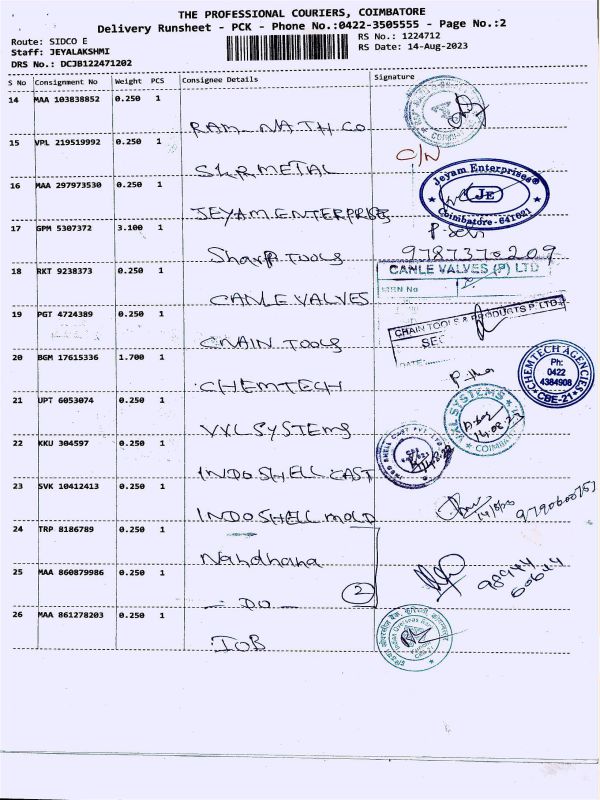 THE PROFESSIONAL COURIERS, COIMBATORE
Delivery Runsheet - PCK - Phone No.:0422-3505555 - Page No.:2
Route: SIDCO E
RS No.: 1224712
Staff: JEYALAKSHMI
RS Date: 14-Aug-2023
DRS No.: DCJB122471202
S No Consignment No Weight PCS Consignee Details Signature
14 MAA 103838852 0.250 1
RAM NATH CO
15 VPL 219519992 0.250 1
C/N
SKR METAL
16 MAA 297973530 0.250 1
Jeyam Enterprises®
JE
Coimbatore - 641021
JEYAM ENTERPRISES
17 GPM 5307372 3.100 1
9787370209
Sharp Tools
18 RKT 9238373 0.250 1
CANLE VALVES (P) LTD
MRN No
CANLE VALVES
19 PGT 4724389 0.250 1
CHAIN TOOLS & PRODUCTS P LTD.
DATE:
CHAIN TOOLS
20 BGM 17615336 1.700 1
CHEMTECH AGENCIES
Ph:
0422
4384908
CBE-21
CHEMTECH
21 UPT 6053074 0.250 1
VXL SYSTEMS
14.08.23
COIMBATORE
VXL SYSTEMS
22 KKU 304597 0.250 1
INDO SHELL CAST
23 SVK 10412413 0.250 1
INDO SHELL MOLD
24 TRP 8186789 0.250 1
Nandhana
25 MAA 860879986 0.250 1
2
- DO -
26 MAA 861278203 0.250 1
Indian Overseas Bank
IOB